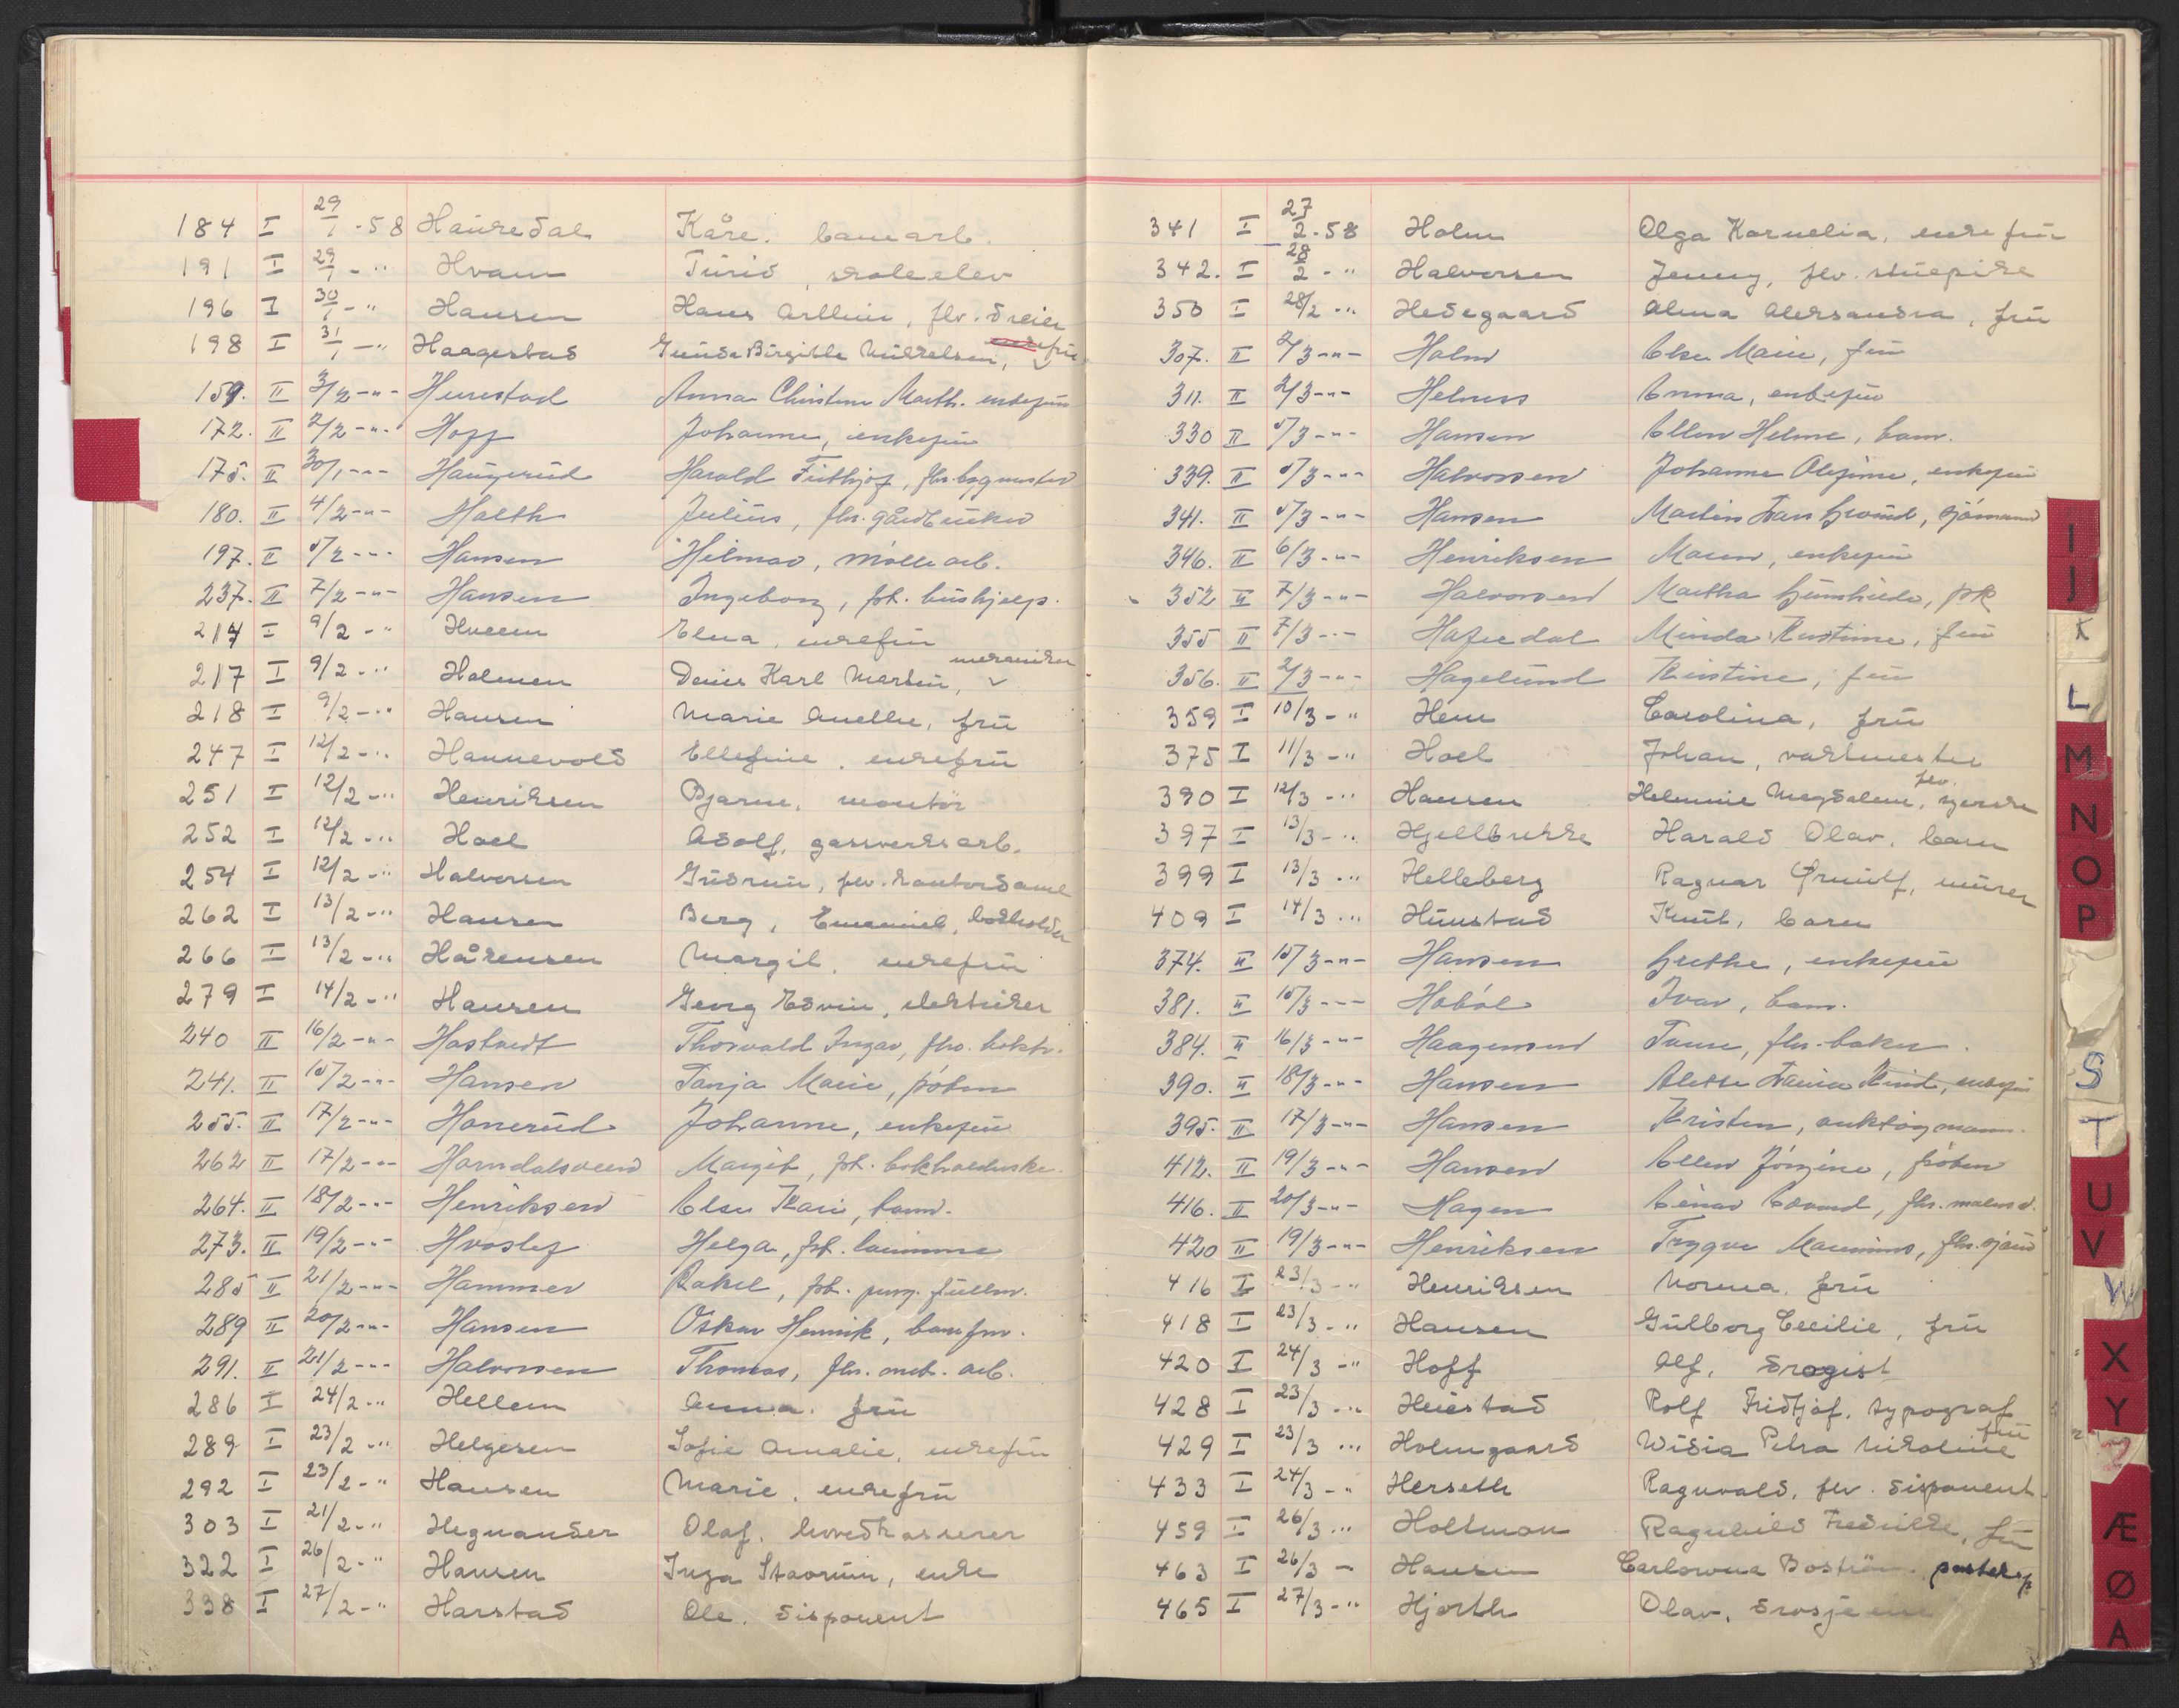 184 I 29/1 - 58 Hauredal Kåre. banearb.
191 I 29/1 - " Hvam Turid, skoleelev
196 I 30/1 - " Hansen Hans Arthur, fhv. dreier
198 I 31/1 - " Haagestad Gunda Birgitte Mikkelsen, frue
159. II 3/2 - " - Hunstad Anna Christine Marth. enkefru
172. II 2/2 - " - Hoff Johanne, enkefru
175. II 30/1 - " - Haugerud Harald Frithjof, fhv. bygmester
180. II 4/2 - " - Holth Julius, fhv. gårdbruker
197. II 5/2 - " - Hansen Hilmar, mølle arb.
237. II 7/2 - " - Hansen Ingeborg, frk. hushjelp.
214 I 9/2 - " Hveem Elna, enkefru
217 I 9/2 - " Holmen Denis Karl Martin, mekaniker
218 I 9/2 - " Hansen Marie Anette, fru
247 I 12/2 - " Hannevold Ellefine, enkefru
251 I 12/2 - " Henriksen Bjarne, montør
252 I 12/2 - " Hoel Adolf, gassverksarb.
254 I 12/2 - " Halvorsen Gudrun, fhv. kontordame
262 I 13/2 - " Hansen Berg, Emanuel, bokholder
266 I 13/2 - " Håkensen Margit, enkefru
279 I 14/2 - " Hansen Georg Edvin, elektriker
240 II 16/2 - " - Hastvedt Thorvald Ingar, fhv. boktr.
241. II 15/2 - " - Hansen Tanja Marie, frøken
255. II 17/2 - " - Honerud Johanne, enkefru
262 II 17/2 - " - Horndalsveen Margit, frk. bokholderske
264. II 18/2 - " - Henriksen Else Kari, barn.
273. II 19/2 - " - Hvoslef Helga, frk. lærerinne
285 II 21/2 - " - Hammer Rakel, frk. purg. fullm.
289 II 20/2 - " - Hansen Oskar Henrik, banefm.
291. II 21/2 - " - Halvorsen Thomas, fhv. mek. arb.
286 I 24/2 - " Hellem Anna. fru
289 I 23/2 - " Helgesen Sofie Amalie, enkefru
292 I 23/2 - " Hansen Marie, enkefru
303 I 21/2 - " Hegnander Olaf, hovedkasserer
322 I 26/2 - " Hansen Inga Stavrum, enke
338 I 27/2 - " Harstad Ole. disponent
341 I 27/2 - 58 Holm Olga Kornelia, enkefru
342. I 28/2 - " Halvorsen Jenny, fhv. stuepike
350 I 28/2 - " Hedegaard Alma Aleksandra, fru
307. II 2/3 - " - Holm Else Marie, fru
311. II 2/3 - " - Helness Emma, enkefru
330 II 5/3 - " - Hansen Ellen Helene, barn.
339. II 5/3 - " - Halvorsen Johanne Olefine, enkefru
341. II 5/3 - " - Hansen Martin, sjømann
346. II 6/3 - " - Henriksen Maren, enkefru
352 II 7/3 - " - Halvorsen Martha Gunhilde, frk
355 II 7/3 - " - Hafredal Minda Kristine, fru
356. II 2/3 - " - Hagelund Kirstine, fru
359 I 10/3 - " Hem Carolina, fru
375 I 11/3 - " Hoel Johan, vaktmester
390 I 12/3 - " Hansen Helmine Magdalene, fhv. syerske
397 I 13/3 - " Hjellbrekke Harald Olav, barn
399 I 13/3 - " Helleberg Ragnar Ørnulf, murer
409 I 14/3 - " Hunstad Knut, barn
374. II 15/3 - " - Hansen Grethe, enkefru
381. II 15/3 - " - Hobøl Ivar, barn.
384. II 16/3 - " - Haagensen fhv. baker.
390. II 18/3 - " - Hansen enkefru
395. II 17/3 - " - Hansen Kristen, anktionsmann.
412. II 19/3 - " - Hansen Ellen Jørgine, frøken
416. II 20/3 - " - Hagen Einar Edvard, fhv. malerm.
420 II 19/3 - " - Henriksen Trygve Maximus, fhv. sjåfør
416 I 23/3 - " Henriksen Norma, fru
418 I 23/3 - " Hansen Gulborg Cecilie, fru
420 I 24/3 - " Hoff Alf, drogist
428 I 23/3 - " Heiestad Rolf Fridtjof, typograf
429 I 23/3 - " Holmgaard Widia Petra Nikoline fru
433 I 24/3 - " Herseth Ragnvald, fhv. disponent
459 I 26/3 - " Holtmon Ragnhild Fredrikke, fru
463 I 26/3 - Hansen Carlowna Boström. posteksp
465 I 27/3 - " Hjorth Olav, drosjeeier
I
J
K
L
M
N
O
P
S
T
U
V
W
X
Y
Æ
Ø
A